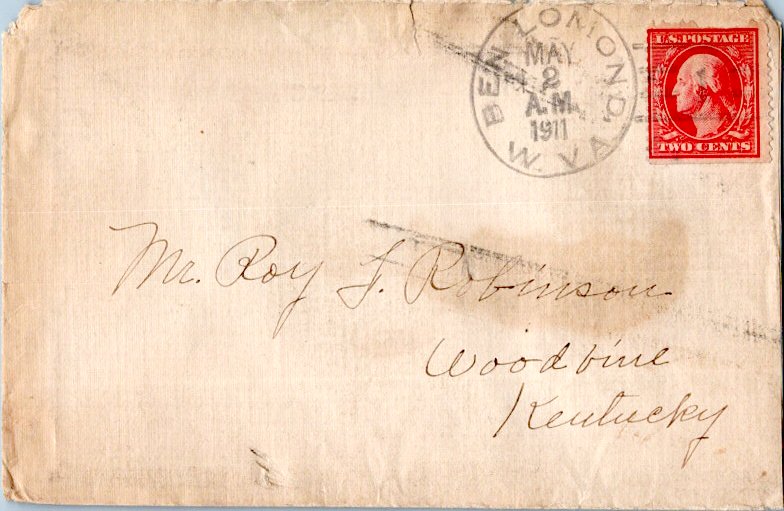 BEN LOMOND,
MAY
2
A.M.
1911
W. VA.
U.S. POSTAGE
TWO CENTS
Mr. Roy F. Robinson
Woodbine
Kentucky